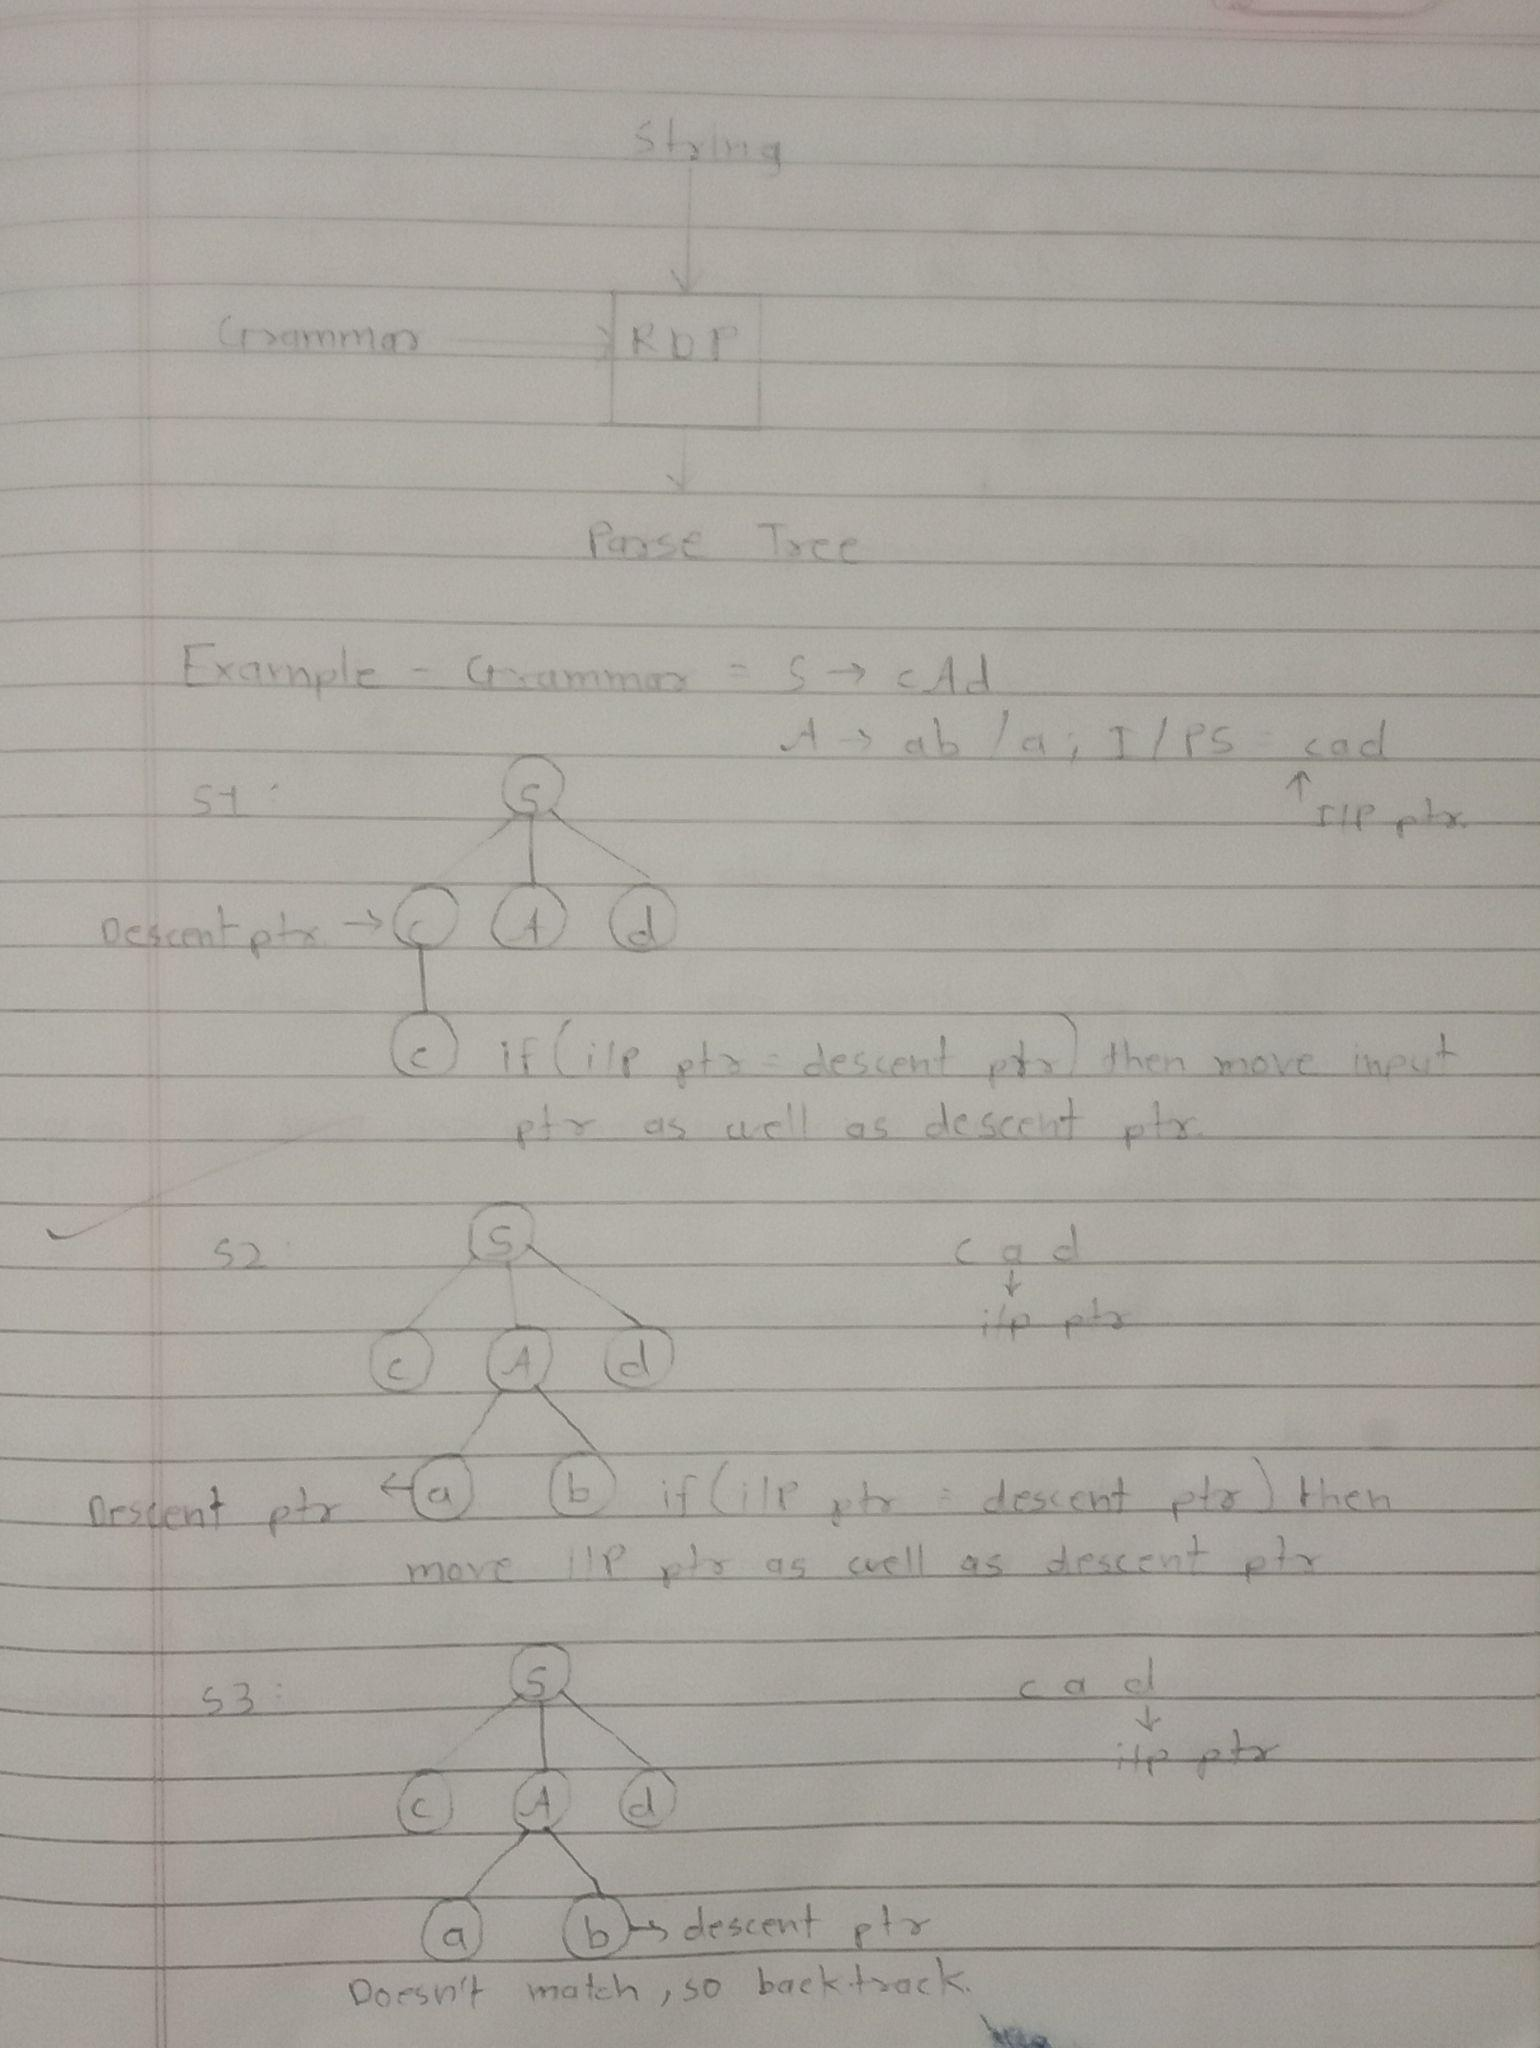 String
Grammar
RDP
Parse Tree
Example - Grammar = S → cAd
A → ab / a ; I/PS = cad
S1 :
S
↑
I/P ptr
Descent ptr → c A d
c if (i/p ptr = descent ptr) then move input
ptr as well as descent ptr.
S2 :
S
c a d
↓
i/p ptr
c A d
Descent ptr ← a b if (i/P ptr = descent ptr) then
move i/P ptr as well as descent ptr
S3 :
S
c a d
↓
i/p ptr
c A d
a b → descent ptr
Doesn't match, so backtrack.